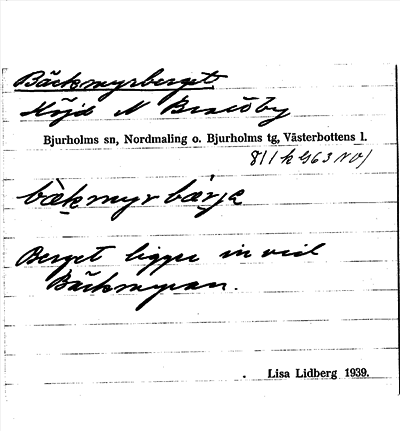 Bäckmyrberget
Höjd N Bredby
Bjurholms sn, Nordmaling o. Bjurholms tg, Västerbottens l.
bäkmyrbärjə
Berget ligger invid
Bäckmyran.
Lisa Lidberg 1939.